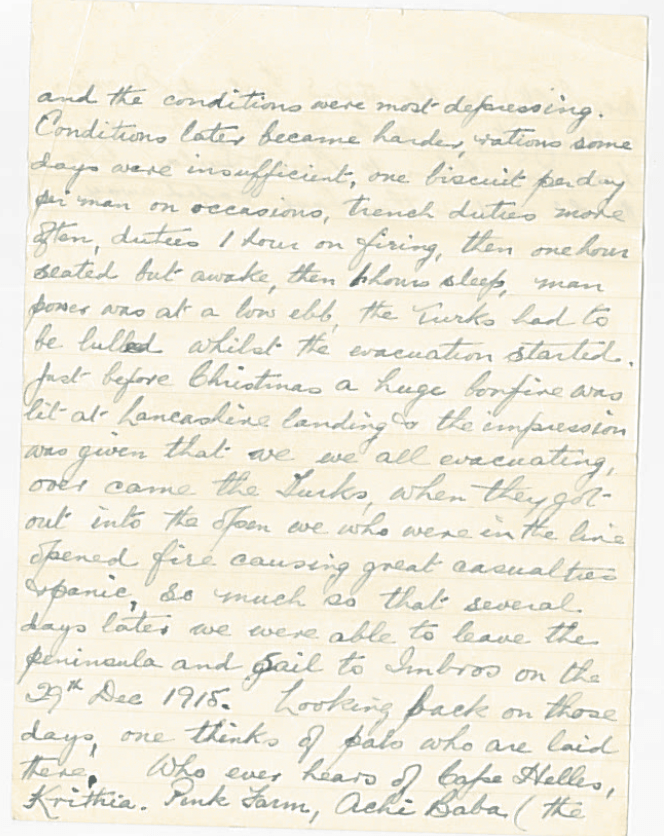 and the conditions were most depressing.
Conditions later became harder, rations some
days were insufficient, one biscuit per day
per man on occasions, trench duties more
often, duties 1 hour on firing, then one hour
seated but awake, then hours sleep, man
power was at a low ebb, the Turks had to
be lulled whilst the evacuation started.
Just before Christmas a huge bonfire was
lit at Lancashire landing & the impression
was given that we we all evacuating,
over came the Turks, when they got
out into the open we who were in the line
opened fire causing great casualties
& panic, so much so that several
days later we were able to leave the
peninsula and sail to Imbros on the
29th Dec 1915. Looking back on those
days, one thinks of pals who are laid
there. Who ever hears of Cape Helles,
Krithia. Pink Farm, Achi Baba (the